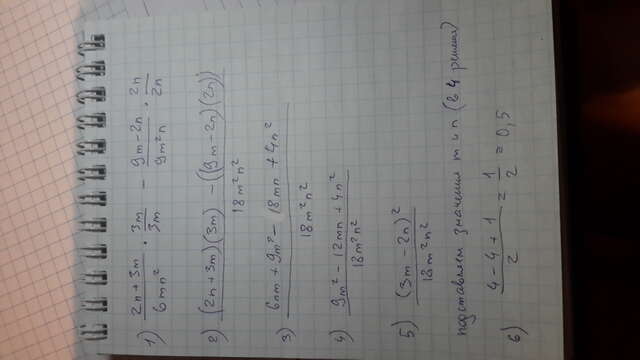 1) (2n + 3m)/(6mn²) · (3m)/(3m) − (9m − 2n)/(9m²n) · (2n)/(2n)
2) ((2n + 3m)(3m) − ((9m − 2n)(2n)))/(18m²n²)
3) (6nm + 9m² − 18mn + 4n²)/(18m²n²)
4) (9m² − 12mn + 4n²)/(18m²n²)
5) (3m − 2n)²/(18m²n²)
подставляем значения m и n (в 4 решения)
6) (4 − 4 + 1)/2 = 1/2 = 0,5